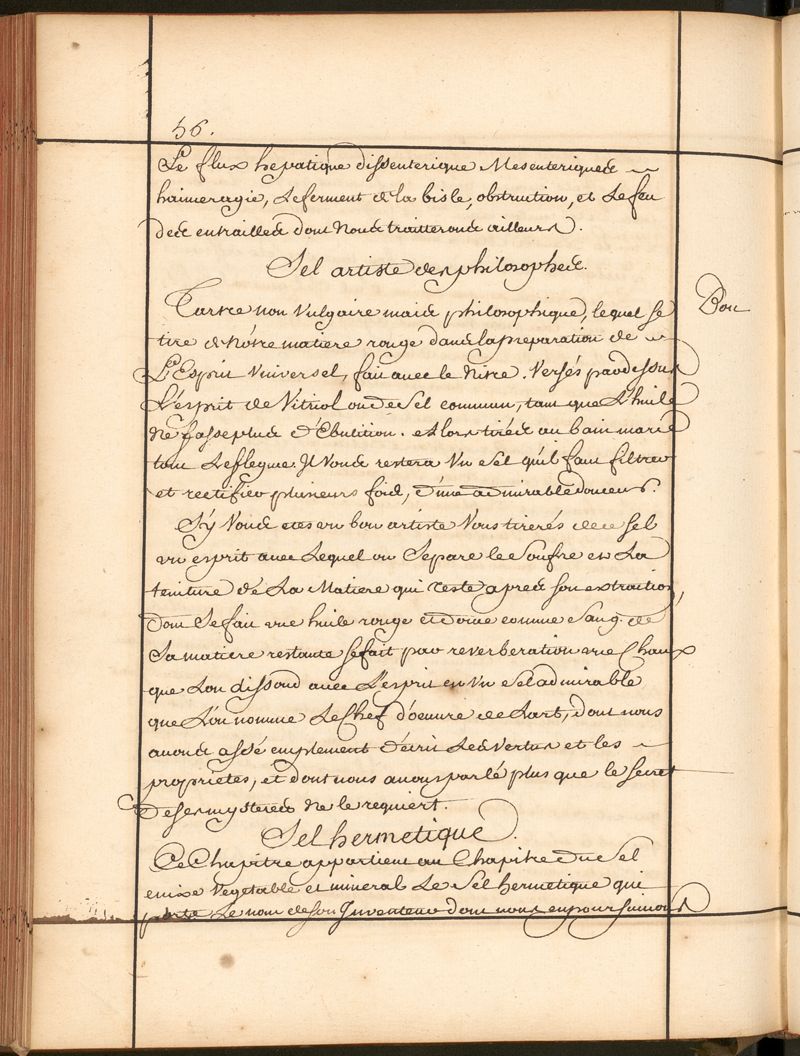 56.
Le flux hepatique dissenterique Mesenteriques
haimeragie, Le ferment de la bisle, obstruction, et Le feu
des entrailles dont Nous traitterons ailleurs.
Sel artiste des philosophes.
Tartre non Vulgaire mais philosophique, lequel se
tire de nôtre matiere rouge dans la preparation de
L'Esprit Universel, fait avec le Nitre. Versés par dessus
L'esprit de Vitriol ou de Sel commun, tant que L'huile
Ne fasse plus d'Ebulition. et Lors tirés au bain marie
tout Le flegme. Il Vous restera Un Sel qu'il faut filtrer
et rectifier plusieurs fois, d'une admirable douceur.
Sy Vous etes un bon artiste Vous tirerés de ce sel
un esprit avec Lequel on Separe le Soufre et La
teinture de La Matiere qui reste apres son extraction,
dont Se fait une huile rouge et douce comme Sang. de
Sa matiere restante se fait par reverberation une Chaux
que L'on dissoud avec L'esprit en Un Sel admirable
que L'on nomme Le Chef d'oeuvre de L'art, dont nous
avons assé emplement décrit Les Vertus et les
proprietes, et dont nous avons parlé plus que le secret
De ses mysteres ne le requiert.
Sel hermetique.
Ce Chapitre appartient au Chapitre du Sel
enixe Vegetable et mineral Le Sel hermetique qui
porte Le nom de son Inventeur dont nous en poursuivons
Bon